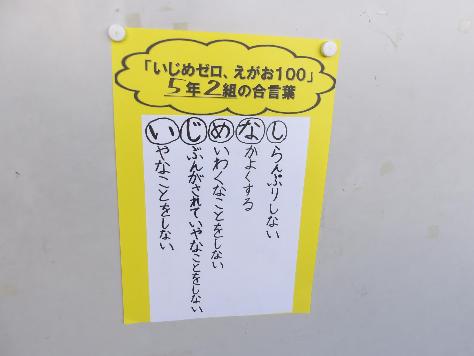 「いじめゼロ、えがお100」
5年2組の合言葉
いやなことをしない
じぶんがされていやなことをしない
めいわくなことをしない
なかよくする
しらんぷりしない